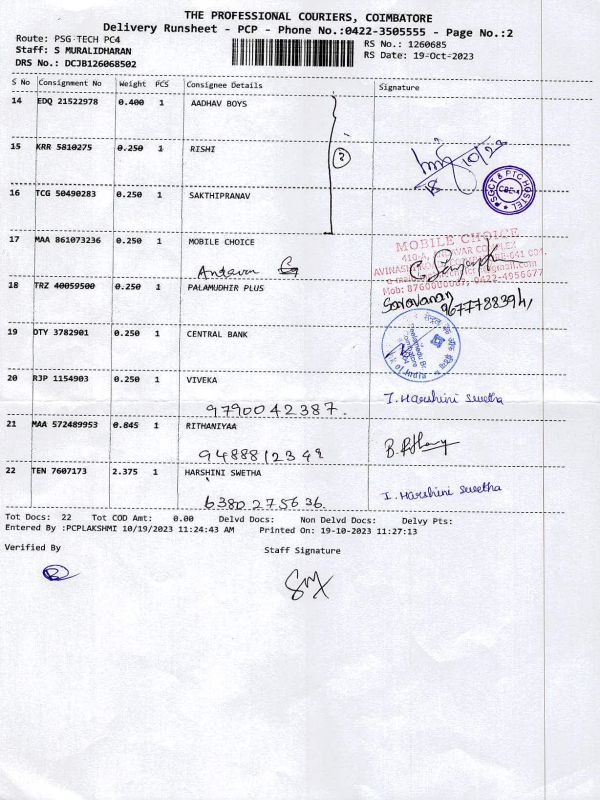 THE PROFESSIONAL COURIERS, COIMBATORE
Delivery Runsheet - PCP - Phone No.:0422-3505555 - Page No.:2
Route: PSG TECH PC4
RS No.: 1260685
Staff: S MURALIDHARAN
RS Date: 19-Oct-2023
DRS No.: DCJB126068502
S No Consignment No Weight PCS Consignee Details Signature
14 EDQ 21522978 0.400 1 AADHAV BOYS
15 KRR 5810275 0.250 1 RISHI
2
PSGCT & PTC HOSTEL
16 TCG 50490283 0.250 1 SAKTHIPRANAV
17 MAA 861073236 0.250 1 MOBILE CHOICE
MOBILE CHOICE
18 TRZ 40059500 0.250 1 PALAMUDHIR PLUS
Saravanan
19 DTY 3782901 0.250 1 CENTRAL BANK
20 RJP 1154903 0.250 1 VIVEKA
9790042387.
I. Harshini Swetha
21 MAA 572489953 0.845 1 RITHANIYAA
22 TEN 7607173 2.375 1 HARSHINI SWETHA
6380275636.
I. Harshini Swetha
Tot Docs: 22 Tot COD Amt: 0.00 Delvd Docs: Non Delvd Docs: Delvy Pts:
Entered By :PCPLAKSHMI 10/19/2023 11:24:43 AM Printed On: 19-10-2023 11:27:13
Verified By Staff Signature